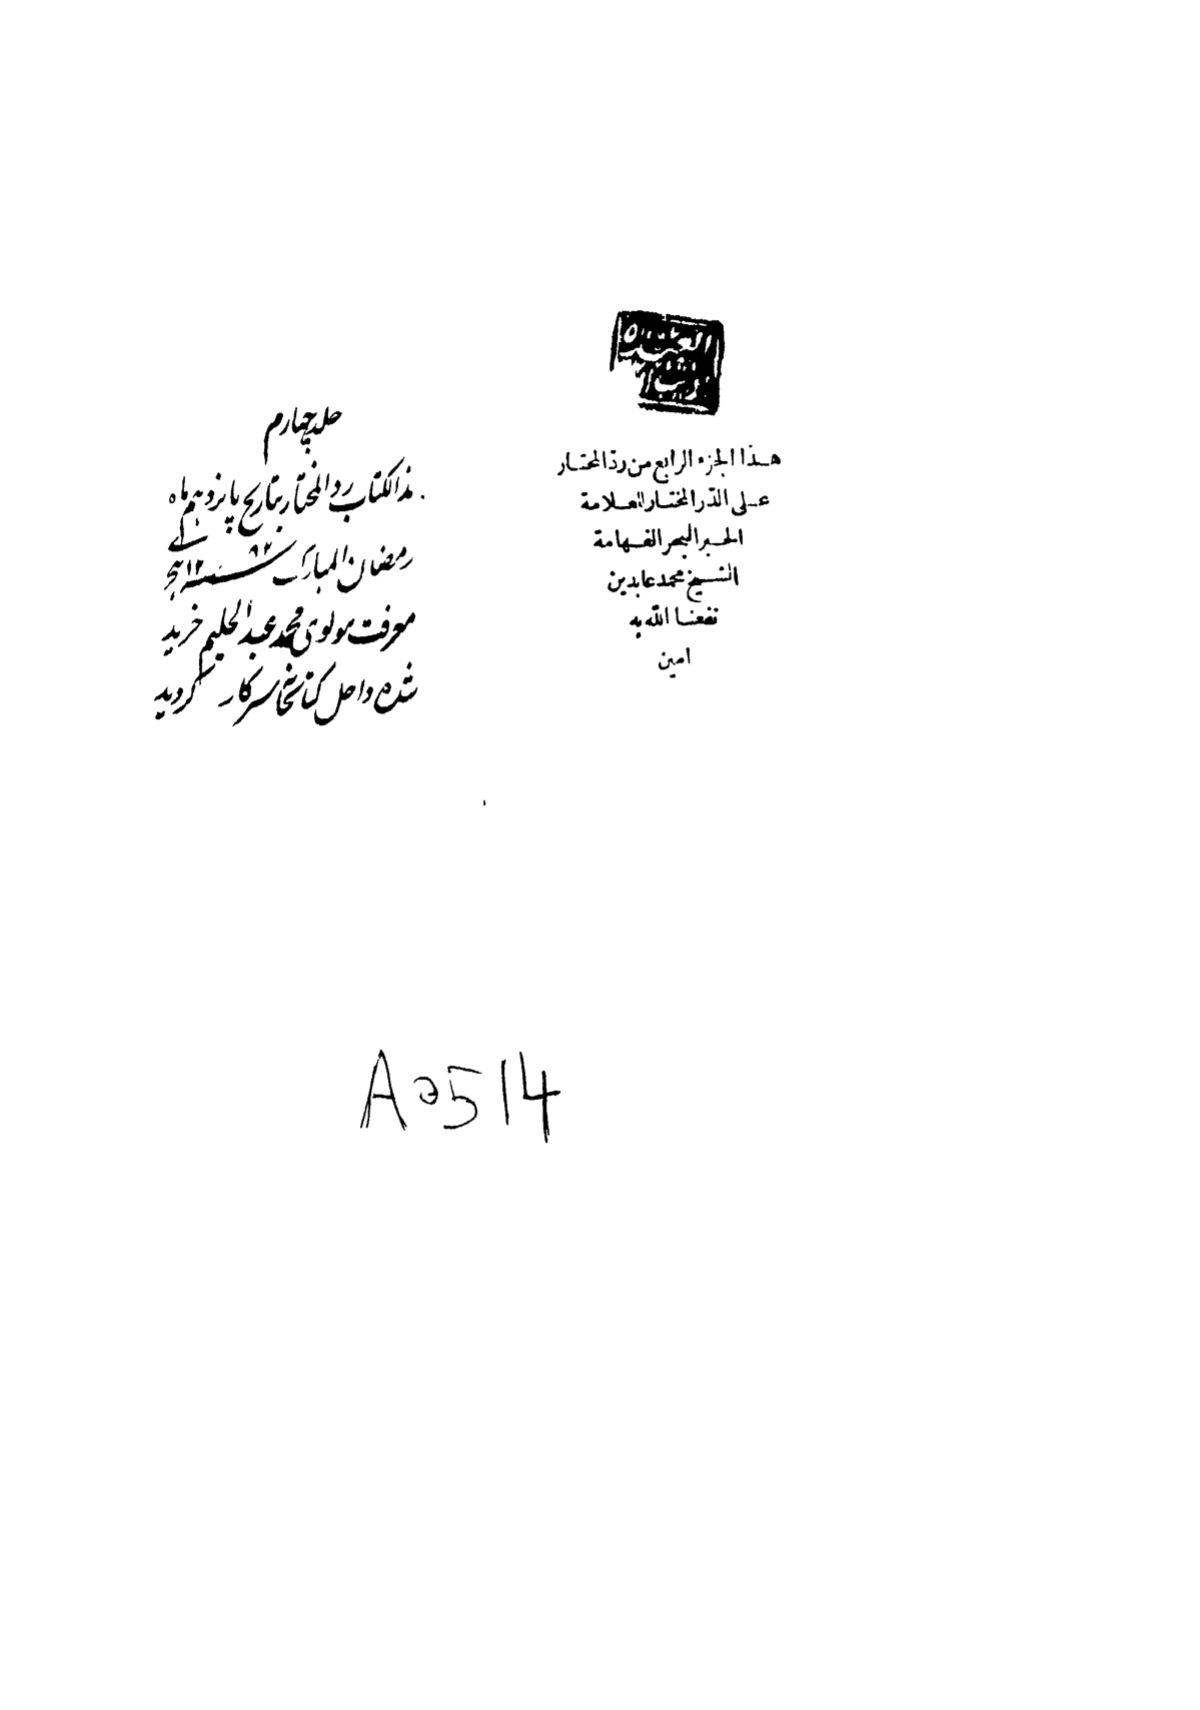 هذا الجزء الرابع من ردّ المحتار
على الدّر المختار للعلامة
الحبر البحر الفهامة
الشيخ محمد عابدين
نفعنا الله به
امين
جلد چهارم
هذا الكتاب رد المحتار بتاریخ پانزدهم ماه
رمضان المبارک سنه ۱۲۹۲ هجری
معرفت مولوی محمد عبد الحلیم خرید
شده داخل کتابخانه سرکار گردید
A0514